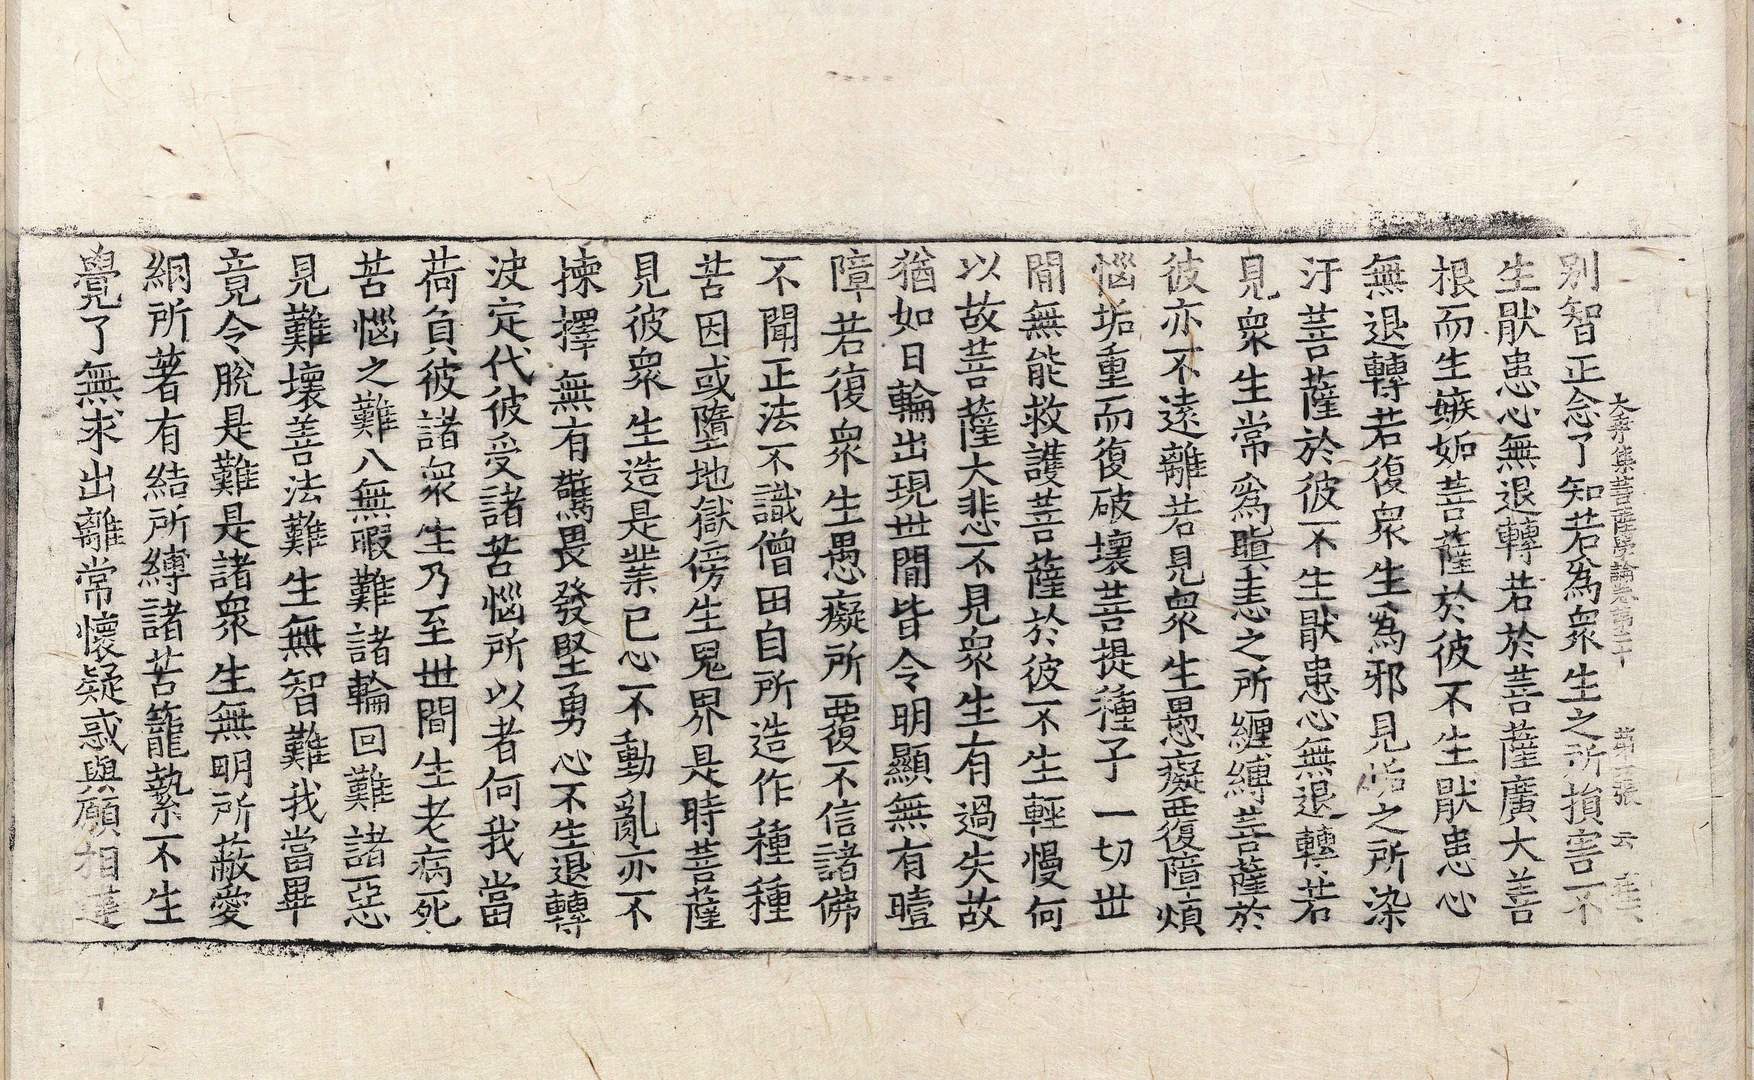 大乘集菩薩學論卷第二十 第二張 云
別智正念了知若為眾生之所損害不
生猒患心無退轉若於菩薩廣大善
根而生嫉妬菩薩於彼不生猒患心
無退轉若復眾生為邪見垢之所染
汙菩薩於彼不生猒患心無退轉若
見眾生常為瞋恚之所纏縛菩薩於
彼亦不遠離若見眾生愚癡覆障煩
惱垢重而復破壞菩提種子一切世
間無能救護菩薩於彼不生輕慢何
以故菩薩大悲不見眾生有過失故
猶如日輪出現世間皆令明顯無有曀
障若復眾生愚癡所覆不信諸佛
不聞正法不識僧田自所造作種種
苦因或墮地獄傍生鬼界是時菩薩
見彼眾生造是業已心不動亂亦不
揀擇無有驚畏發堅勇心不生退轉
決定代彼受諸苦惱所以者何我當
荷負彼諸眾生乃至世間生老病死
苦惱之難八無暇難諸輪回難諸惡
見難壞善法難生無智難我當畢
竟令脫是難是諸眾生無明所蔽愛
網所著有結所縛諸苦籠縶不生
覺了無求出離常懷疑惑與願相違